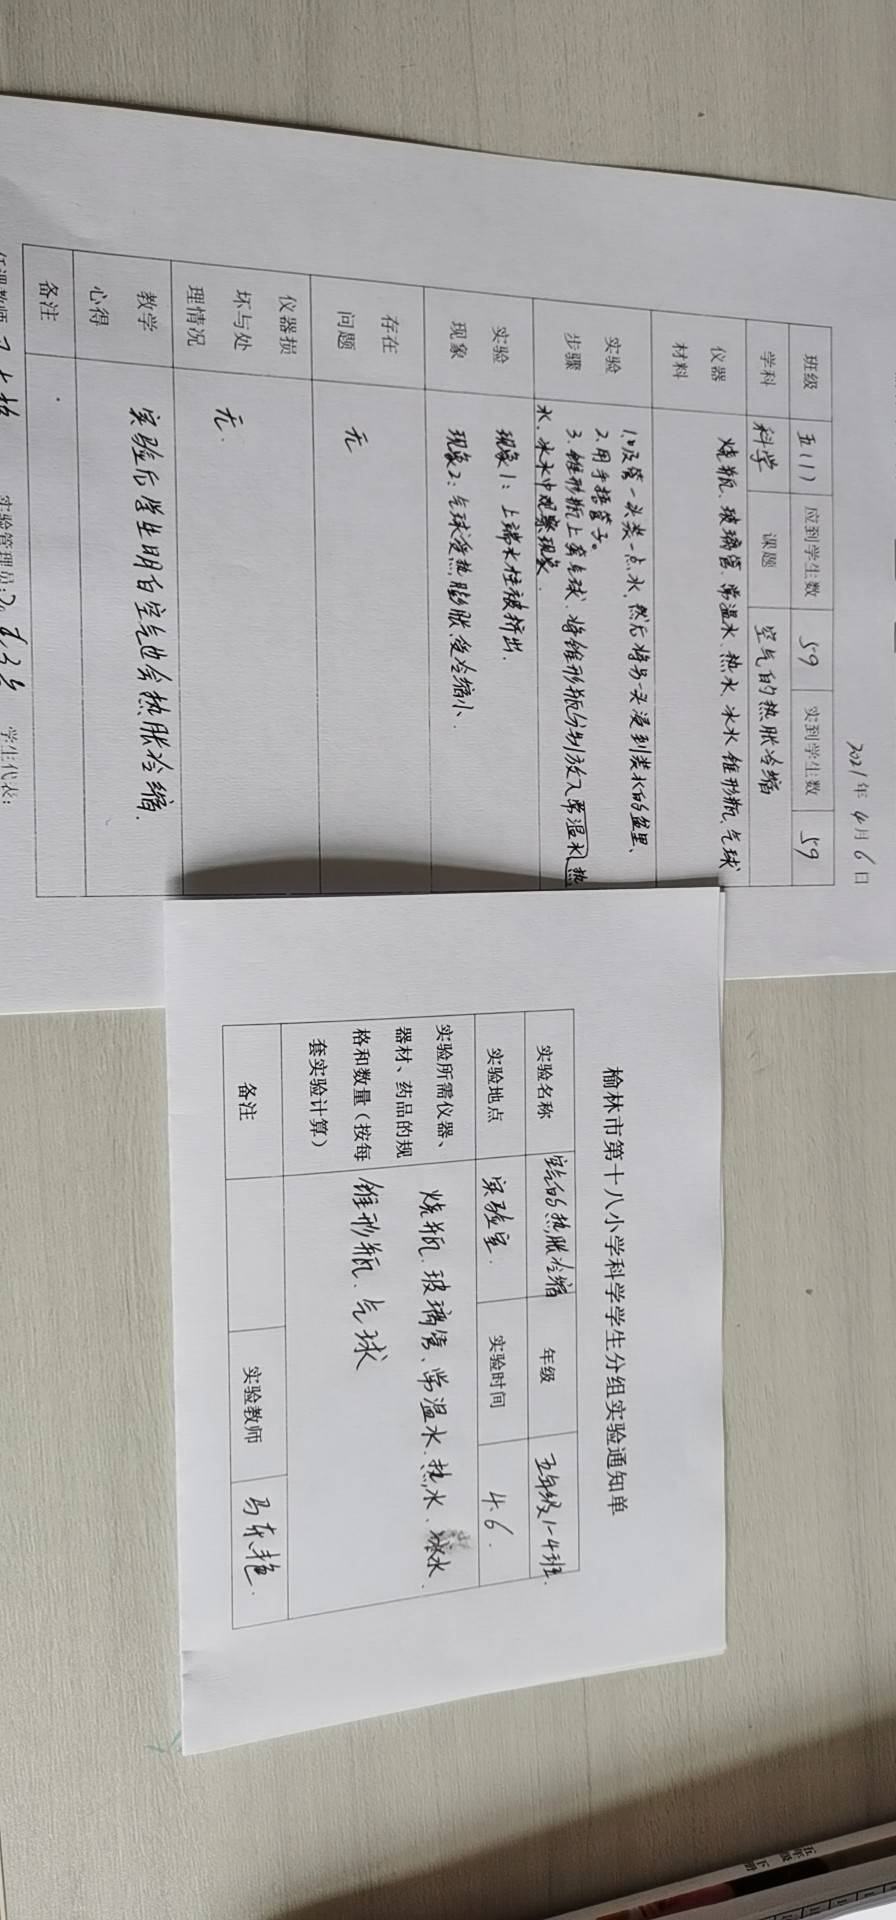 2021年4月6日
班级 五(1) 应到学生数 59 实到学生数 59
学科 科学 课题 空气的热胀冷缩
仪器
材料
烧瓶、玻璃管、常温水、热水、冰水 锥形瓶、气球
实验
步骤
1.吸管一头装一点水,然后将另一头浸到装水的盆里、
2.用手捂管子。
3.锥形瓶上套气球、将锥形瓶分别放入常温水、热
水、冰水中观察现象.
实验
现象
现象1:上端水柱被挤出.
现象2:气球受热膨胀,受冷缩小.
存在
问题
无
仪器损
坏与处
理情况
无.
教学
心得
实验后学生明白空气也会热胀冷缩.
备注
任课教师 实验管理员: 学生代表:
榆林市第十八小学科学学生分组实验通知单
实验名称 空气的热胀冷缩 年级 五年级1-4班.
实验地点 实验室. 实验时间 4.6.
实验所需仪器、
器材、药品的规
格和数量(按每
套实验计算)
烧瓶、玻璃管、常温水、热水、冰水.
锥形瓶、气球
备注 实验教师 马东艳.